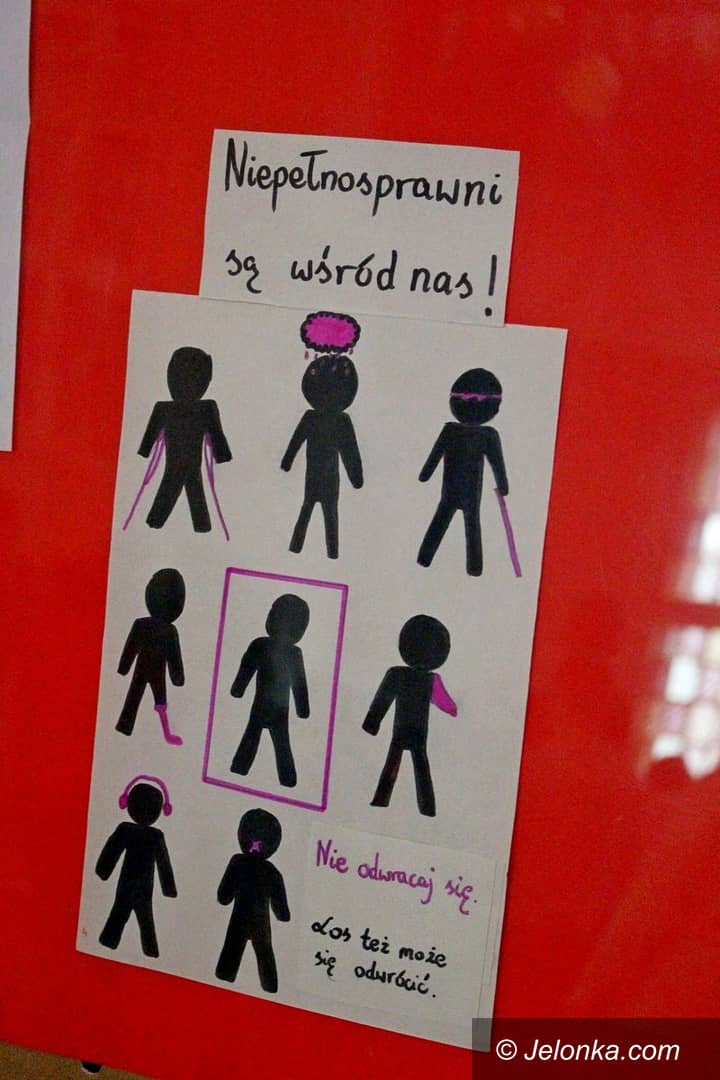 Niepełnosprawni
są wśród nas!
Nie odwracaj się.
Los też może
się odwrócić.
© Jelonka.com